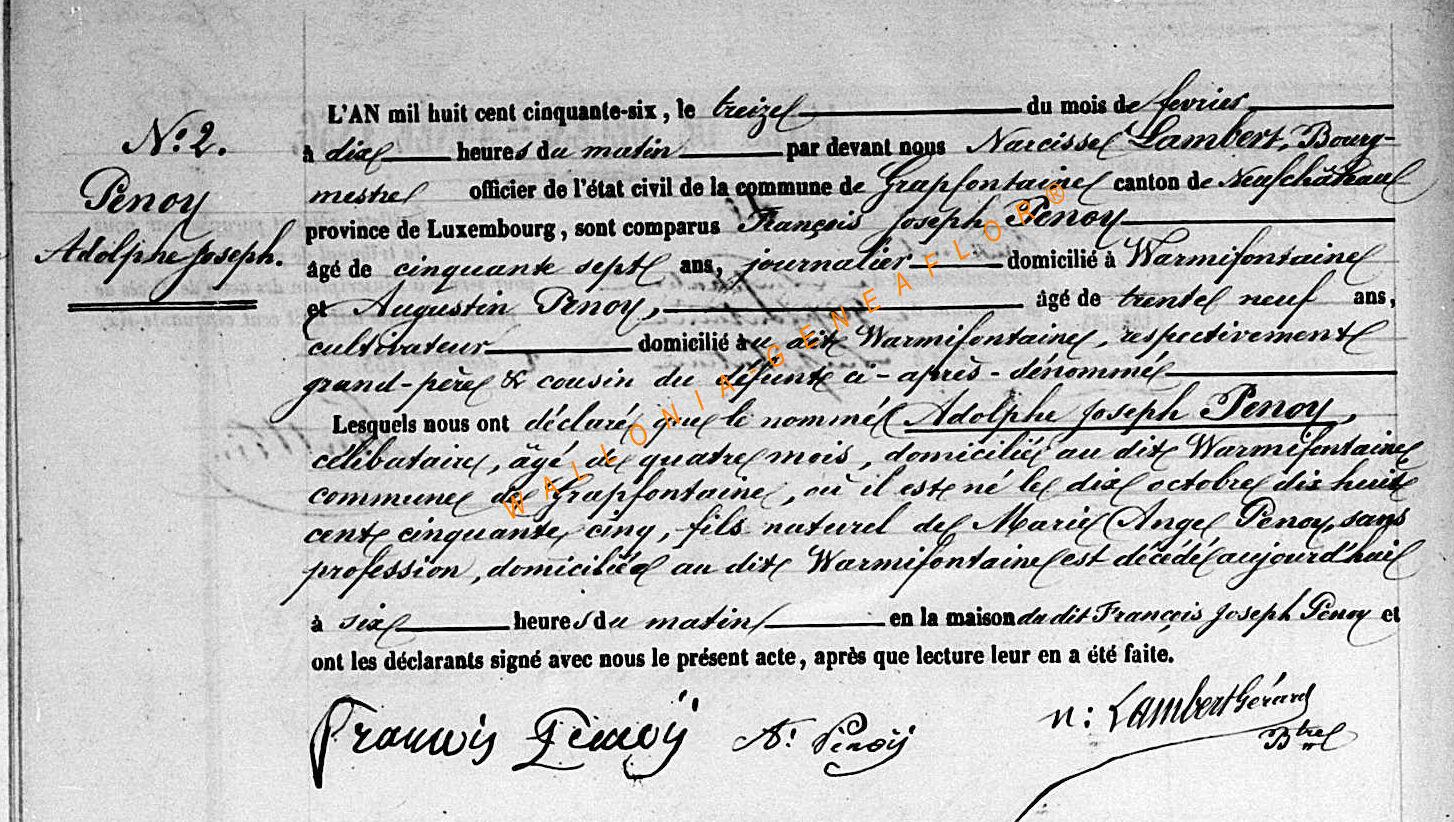 N.º 2.
Penoy
Adolphe Joseph.
L'AN mil huit cent cinquante-six, le treize du mois de fevrier
à dix heures du matin par devant nous Narcisse Lambert, Bourg-
mestre officier de l'état civil de la commune de Grapfontaine canton de Neufchâteau
province de Luxembourg, sont comparus François Joseph Penoy
âgé de cinquante sept ans, journalier domicilié à Warmifontaine
et Augustin Penoy, âgé de trente neuf ans,
cultivateur domicilié au dit Warmifontaine, respectivement
grand-père & cousin du défunt ci-après-dénommé
Lesquels nous ont déclaré que le nommé Adolphe Joseph Penoy,
célibataire, âgé de quatre mois, domicilié au dit Warmifontaine
commune de Grapfontaine, où il est né le dix octobre dix huit
cent cinquante cinq, fils naturel de Marie Ange Penoy, sans
profession, domiciliée au dit Warmifontaine est décédé aujourd'hui
à six heures du matin en la maison du dit François Joseph Penoy et
ont les déclarants signé avec nous le présent acte, après que lecture leur en a été faite.
Francois Penoy A: Penoy n: Lambert Gérard
Btre
WALLONIA-GENEAFLOR®